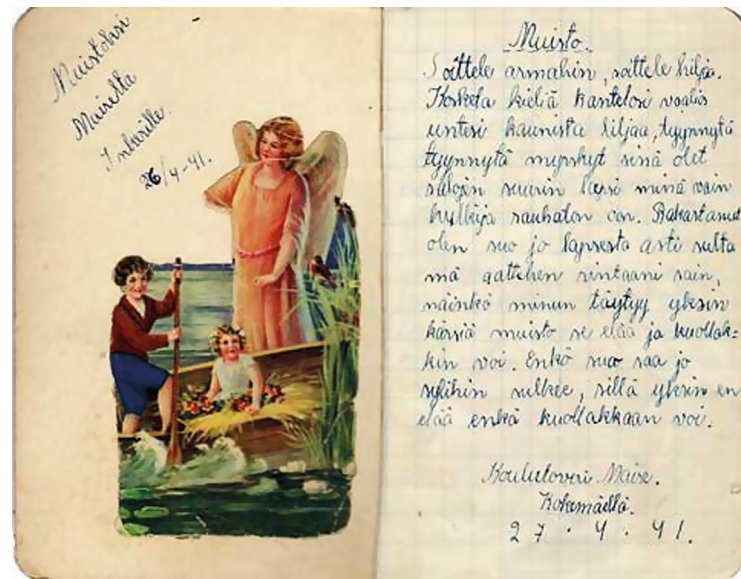 Muistoksi
Mairelta
Inkerille.
26/4-41.
Muisto.
Soittele armahin, soittele hiljaa.
Kosketa kieliä kantelosi vaalis
untesi kaunista liljaa, tyynnytä
tyynnytä myrskyt sinä olet
salojen suurin lapsi minä vain
hylkijä rauhaton oon. Rakastanut
olen suo jo lapsesta asti sulta
mä aattehen rintaani sain,
näinkö minun täytyy yksin
kärsiä muisto se elää ja kuollak=
kin voi. Enkö suo saa jo
sylihin sulkee, sillä yksin en
elää enkä kuollakkaan voi.
Koulutoveri Maire.
Kokemäellä.
27.4.41.